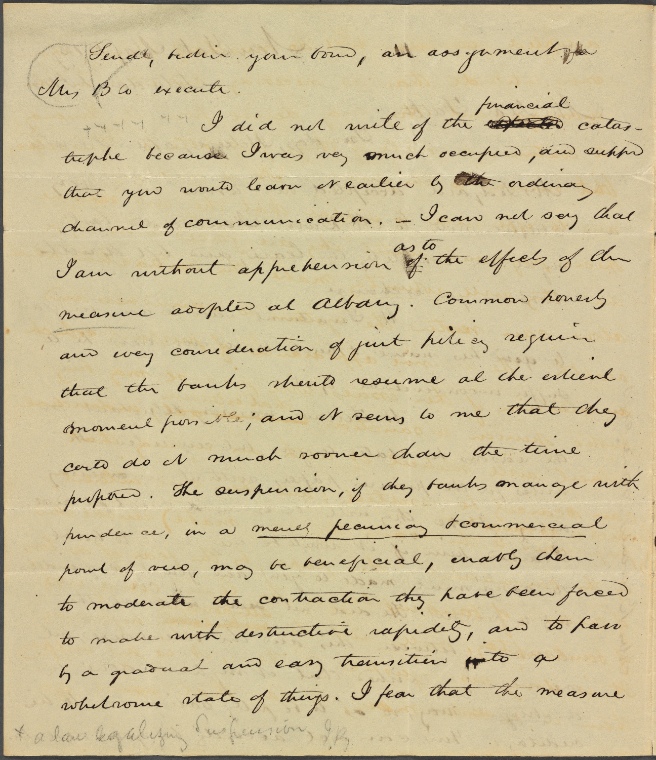 Sends, under your bond, an assignment for
Mrs B to execute.
financial
I did not write of the catas-
trophe because I was very much occupied, and suppd
that you would learn it earlier by the ordinary
channel of communication. — I can not say that
as to
I am without apprehension of the effects of the
measure adopted at Albany. Common honesty
and every consideration of just policy require
that the banks should resume at the earliest
moment possible; and it seems to me that they
could do it much sooner than the time
proposed. The suspension, if they banks manage with
prudence, in a merely pecuniary & commercial
point of view, may be beneficial, enably them
to moderate the contraction they have been forced
to make with destructive rapidity, and to pass
by a gradual and easy transition into a
wholesome state of things. I fear that the measure
+ a law legalizing suspension